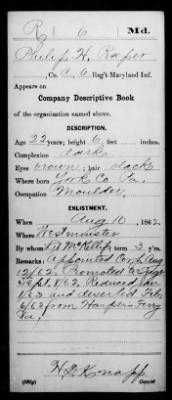 R 6 Md.
Philip H. Raper
, Co. C, 6 Reg't Maryland Inf.
Appears on
Company Descriptive Book
of the organization named above.
DESCRIPTION.
Age 22 years; 6 feet inches.
Complexion dark
Eyes brown; hair black
Where born York Co Pa.
Occupation Moulder
ENLISTMENT.
When Aug 10, 1862
Where Westminster
By whom McKellip term 3 y'rs.
Remarks: Appointed Corp. Aug
12/62. Promoted to Sergt
Sept. 1/62, Reduced Jan
1/63 and deserted Feb.
6/63 from Harper's Ferry
Va.
H D Knapp
Copyist.